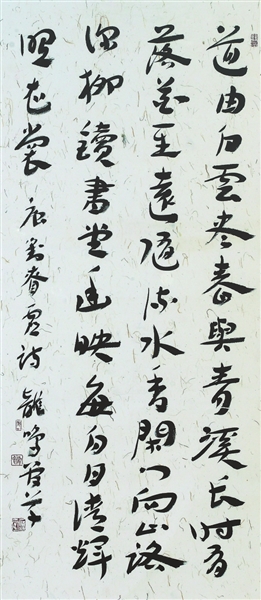 道由白雲盡春與青溪長時有
落花至遠隨流水香閑門向山路
深柳讀書堂幽映每白日清輝
照衣裳 唐劉眘虛詩